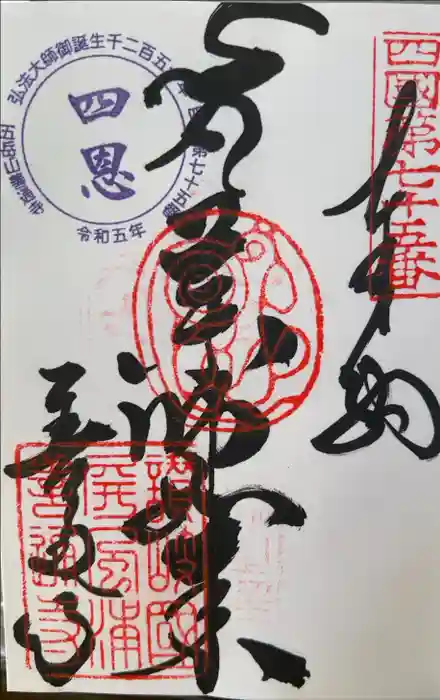 四國第七十五番
奉納
薬師如来
善通寺
弘法大師御誕生千二百五十年
第七十五番
五岳山善通寺
四恩
令和五年
讃岐國
屏風浦
善通寺